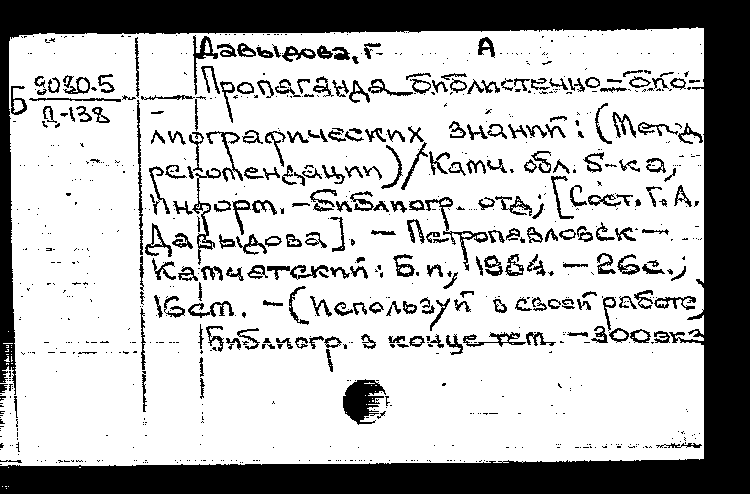 Давыдова, Г А
Б 9080.5
Д-138
Пропаганда библиотечно-биб-
лиографических знаний: (Метод
рекомендации) / Камч. обл. б-ка,
Информ.-библиогр. отд; [Сост. Г.А.
Давыдова]. - Петропавловск-
Камчатский: Б.и., 1984. - 26с.;
16см. - (Используй в своей работе)
Библиогр. в конце тем. - 300экз